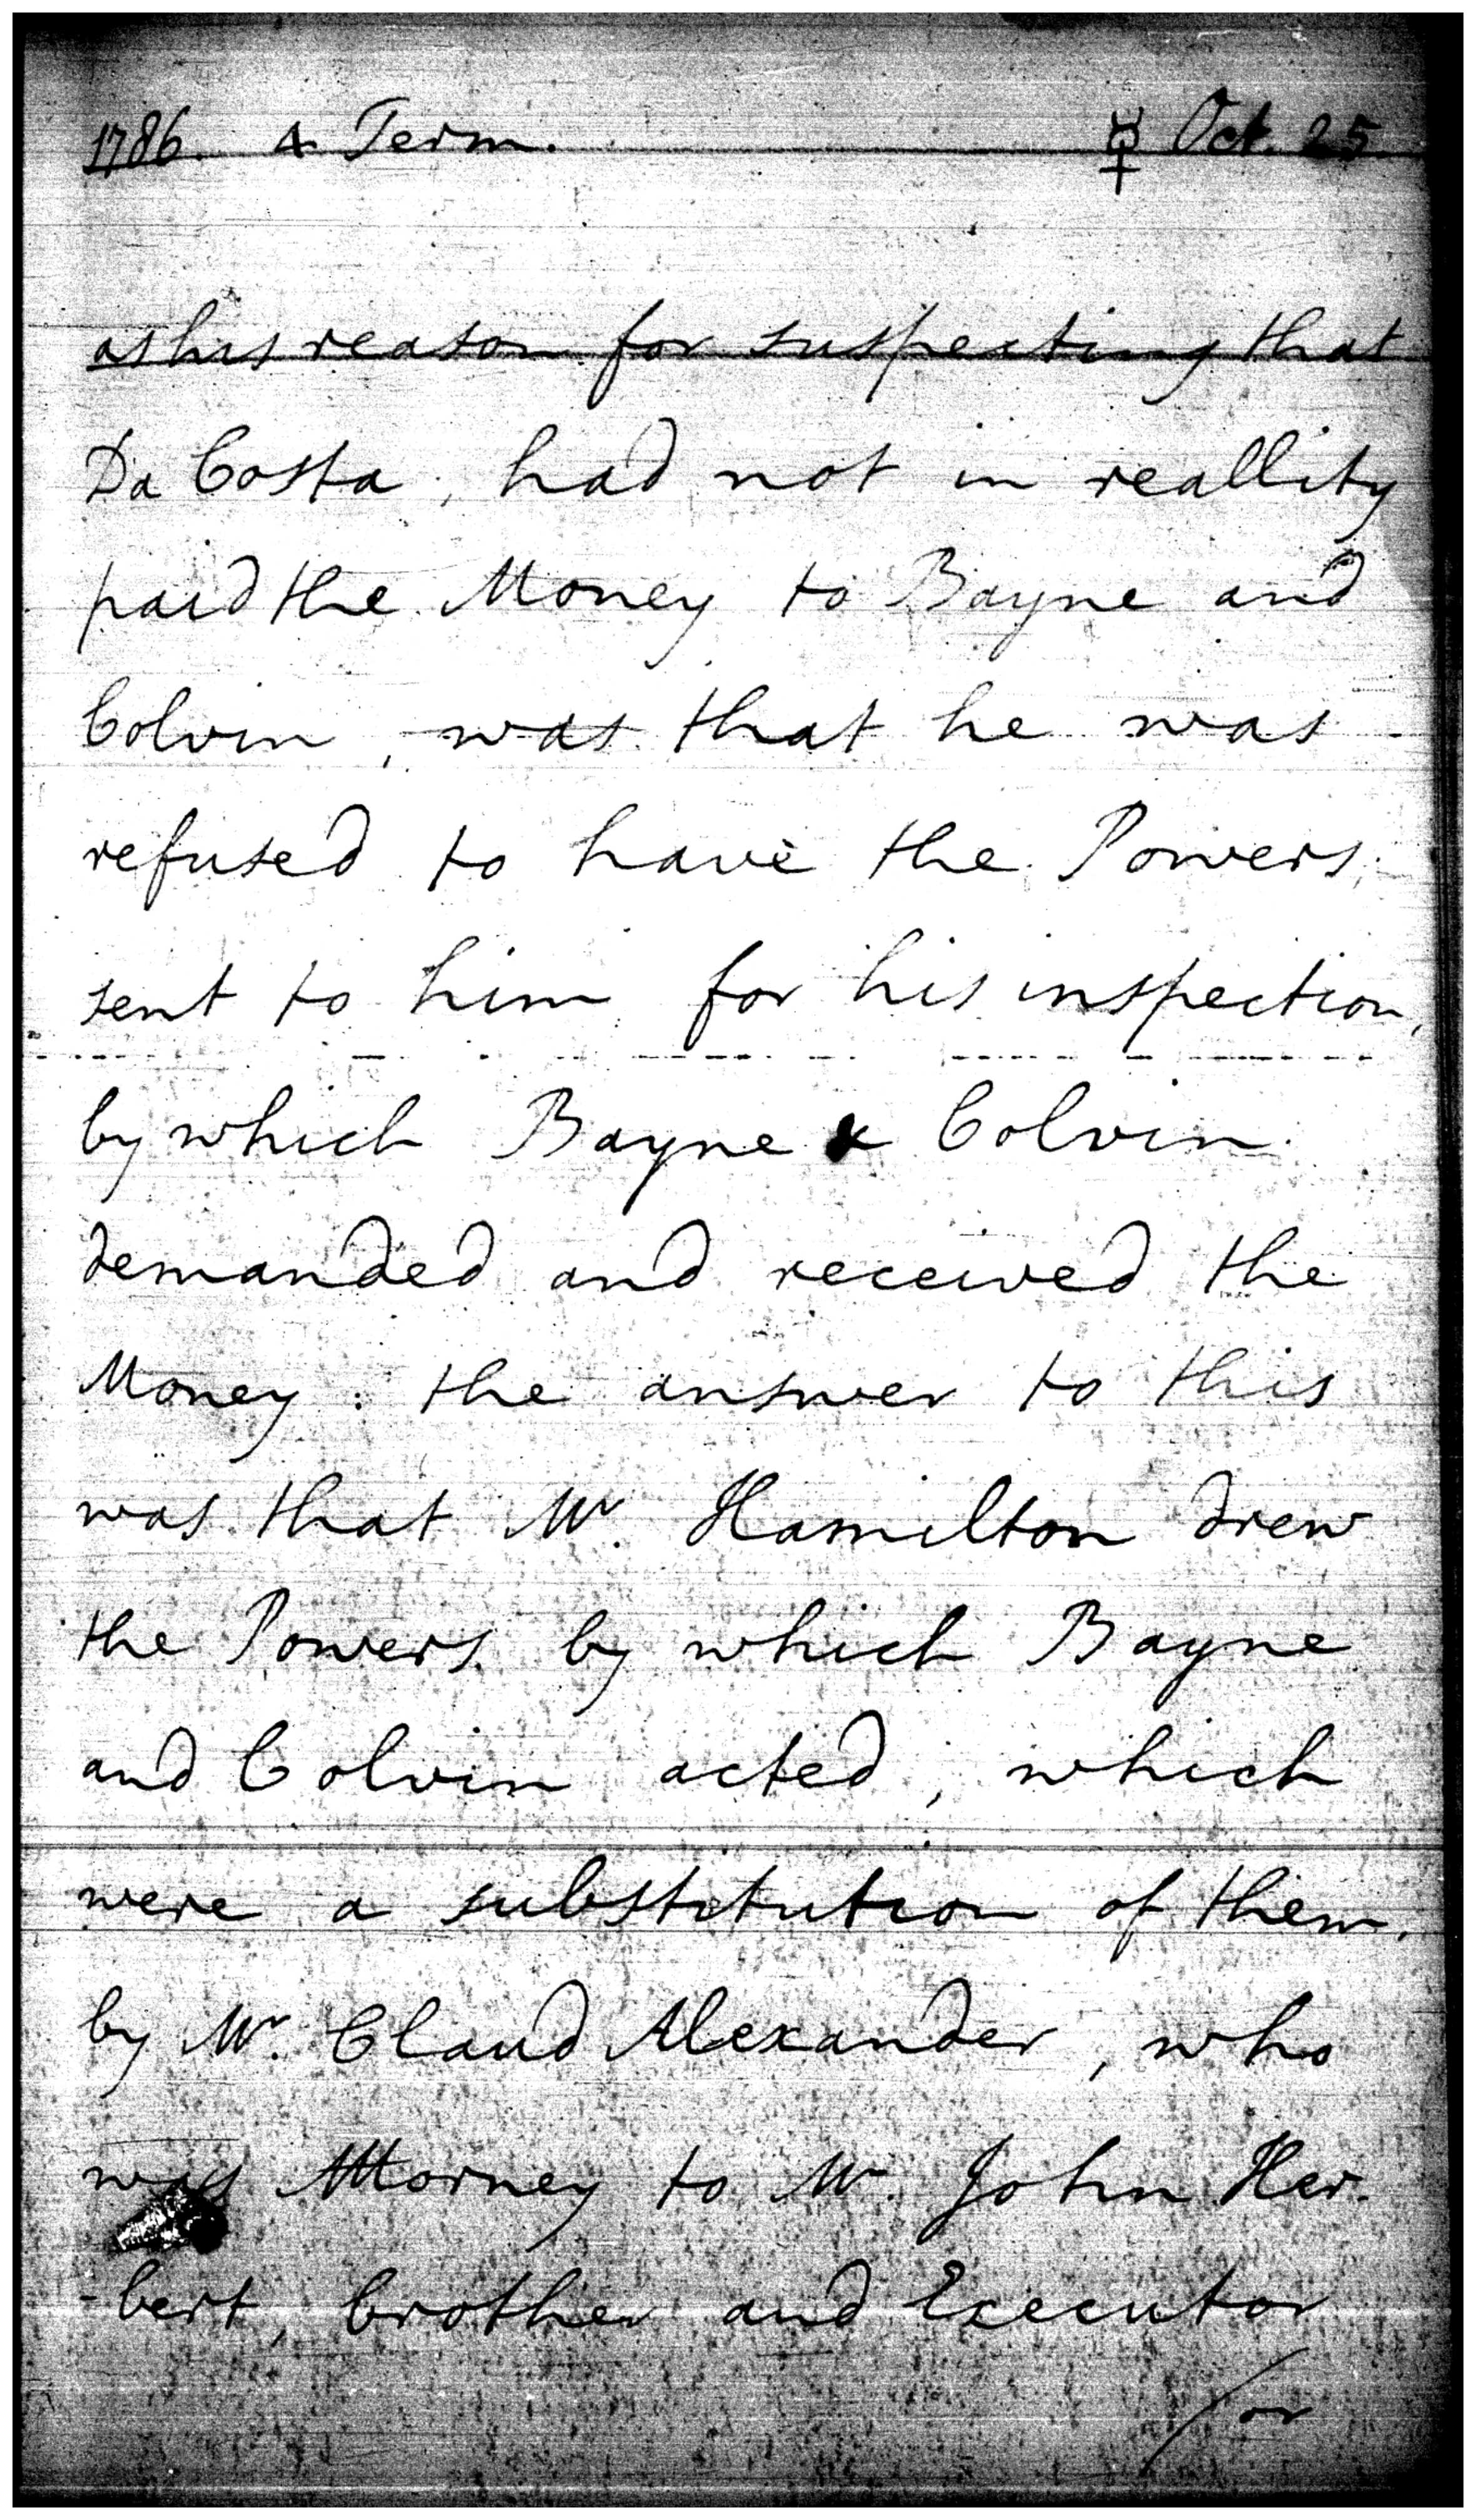 1786. 4 Term. ☿ Oct. 25
as his reason for suspecting that
Da Costa, had not in reallity
paid the Money to Bayne and
Colvin, was that he was
refused to have the Powers
sent to him for his inspection,
by which Bayne & Colvin
demanded and received the
Money: the answer to this
was that Mr. Hamilton drew
the Powers by which Bayne
and Colvin acted, which
were a substitution of them,
by Mr. Claud Alexander, who
was Attorney to Mr. John Her-
-bert, brother and Executor
for